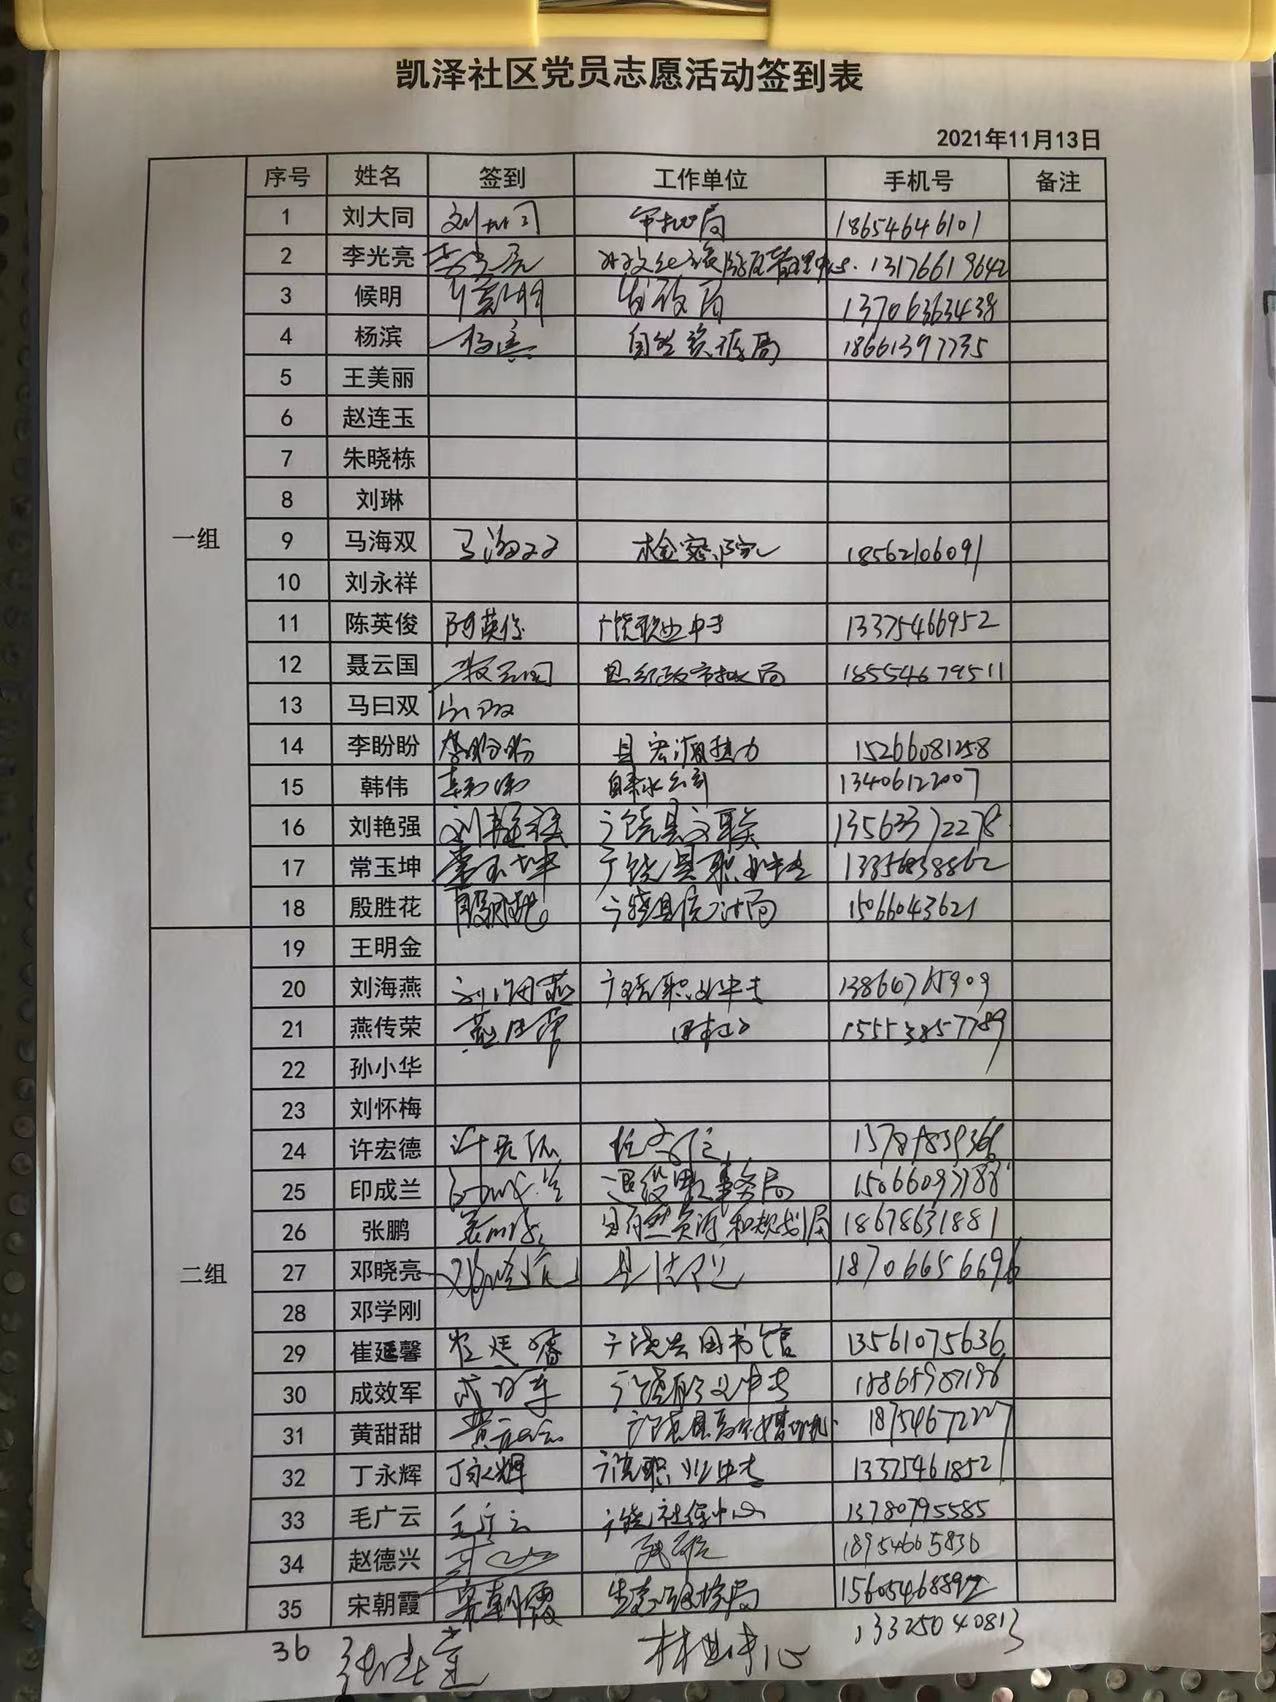 凯泽社区党员志愿活动签到表
2021年11月13日
序号 姓名 签到 工作单位 手机号 备注
一组
1 刘大同 审批局 18654646101
2 李光亮 13176619642
3 候明 发改局 13706363438
4 杨滨 杨滨 自然资源局 18661397735
5 王美丽
6 赵连玉
7 朱晓栋
8 刘琳
9 马海双 马海双 检察院 18562106091
10 刘永祥
11 陈英俊 陈英俊 广饶职业中专 13375466952
12 聂云国 聂云国 县行政审批局 18554679511
13 马曰双
14 李盼盼 李盼盼 县宏源热力 15266081258
15 韩伟 韩伟 自来水公司 13406122007
16 刘艳强 刘艳强 广饶县文联 13563372278
17 常玉坤 常玉坤 广饶县职业中专
18 殷胜花 殷胜花 广饶县统计局 15066043621
二组
19 王明金
20 刘海燕 刘海燕 广饶职业中专
21 燕传荣 燕传荣 15553857789
22 孙小华
23 刘怀梅
24 许宏德 许宏德
25 印成兰 印成兰 退役军人事务局
26 张鹏 张鹏 县自然资源和规划局 18678631881
27 邓晓亮 邓晓亮 县法院 18706656696
28 邓学刚
29 崔延馨 崔廷馨 广饶县图书馆 13561075636
30 成效军 成效军 广饶职业中专
31 黄甜甜 黄甜甜 18754672227
32 丁永辉 丁永辉 广饶职业中专 13375461852
33 毛广云 毛广云 广饶社保中心 13780795585
34 赵德兴 残联 18954665836
35 宋朝霞 宋朝霞 生态环境局
36 林业中心 13325040813